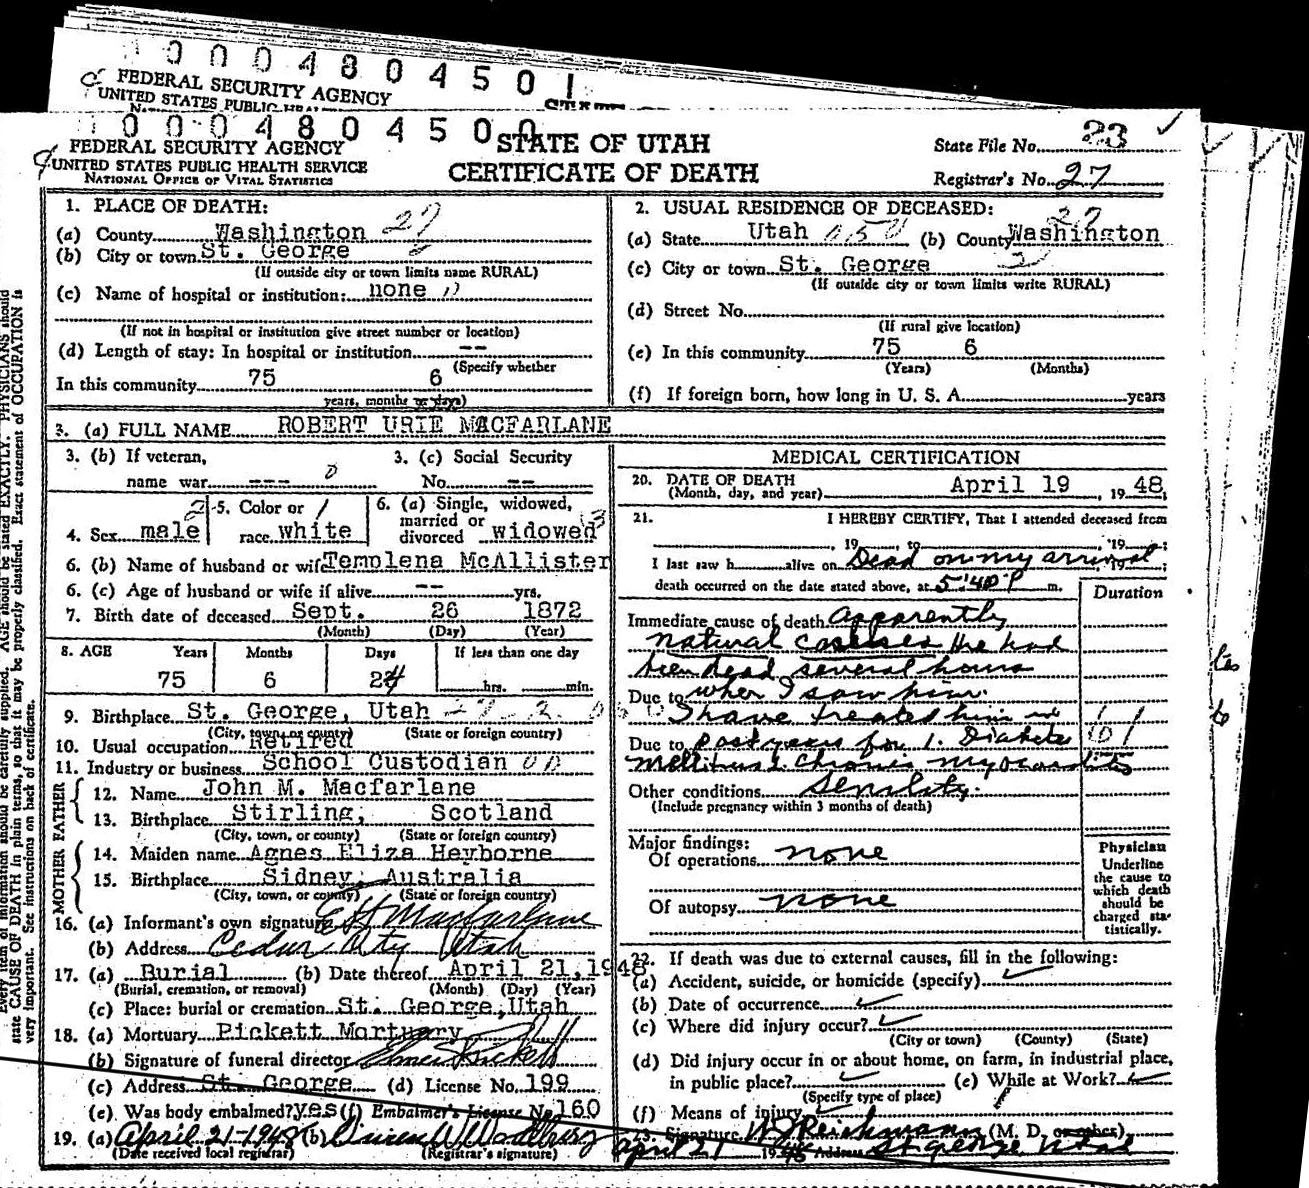 0 0 0 4 8 0 4 5 0 1
FEDERAL SECURITY AGENCY
UNITED STATES PUBLIC HEALTH
0 0 0 4 8 0 4 5 0 0
FEDERAL SECURITY AGENCY
UNITED STATES PUBLIC HEALTH SERVICE
NATIONAL OFFICE OF VITAL STATISTICS
STATE OF UTAH
CERTIFICATE OF DEATH
State File No. 23
Registrar's No. 27
1. PLACE OF DEATH: 27
(a) County Washington
(b) City or town St. George
(If outside city or town limits name RURAL)
(c) Name of hospital or institution: none
(If not in hospital or institution give street number or location)
(d) Length of stay: In hospital or institution --
(Specify whether
In this community 75 6
years, months or days)
2. USUAL RESIDENCE OF DECEASED: 27
(a) State Utah (b) County Washington
(c) City or town St. George
(If outside city or town limits write RURAL)
(d) Street No.
(If rural give location)
(e) In this community 75 6
(Years) (Months)
(f) If foreign born, how long in U. S. A. years
3. (a) FULL NAME ROBERT URIE MACFARLANE
3. (b) If veteran, 3. (c) Social Security
name war --- No. --
4. Sex male 5. Color or race white 6. (a) Single, widowed, married or divorced widowed
6. (b) Name of husband or wife Templena McAllister
6. (c) Age of husband or wife if alive -- yrs.
7. Birth date of deceased Sept. 26 1872
(Month) (Day) (Year)
8. AGE Years Months Days If less than one day
75 6 24 hrs. min.
9. Birthplace St. George, Utah
(City, town or county) (State or foreign country)
10. Usual occupation Retired
11. Industry or business School Custodian
FATHER
12. Name John M. Macfarlane
13. Birthplace Stirling, Scotland
(City, town, or county) (State or foreign country)
MOTHER
14. Maiden name Agnes Eliza Heyborne
15. Birthplace Sidney, Australia
(City, town, or county) (State or foreign country)
16. (a) Informant's own signature E H Macfarlane
(b) Address Cedar City Utah
17. (a) Burial (b) Date thereof April 21, 1948
(Burial, cremation, or removal) (Month) (Day) (Year)
(c) Place: burial or cremation St. George, Utah
18. (a) Mortuary Pickett Mortuary
(b) Signature of funeral director Elmer Pickett
(c) Address St. George (d) License No. 199
(e) Was body embalmed? yes (f) Embalmer's License No. 160
19. (a) April 21-1948 (b)
(Date received local registrar) (Registrar's signature)
MEDICAL CERTIFICATION
20. DATE OF DEATH
(Month, day, and year) April 19, 1948
21. I HEREBY CERTIFY, That I attended deceased from
, 19 , to , 19 ;
I last saw h alive on Dead on my arrival ;
death occurred on the date stated above, at 5:40 P m.
Duration
Immediate cause of death apparently
natural causes He had
been dead several hours
Due to when I saw him.
I have treated him in
Due to past years for 1. Diabetes 10
Mellitus 2. Chronic myocarditis
Other conditions Senility.
(Include pregnancy within 3 months of death)
Major findings:
Of operations none
Of autopsy none
Physician
Underline
the cause to
which death
should be
charged sta-
tistically.
22. If death was due to external causes, fill in the following:
(a) Accident, suicide, or homicide (specify)
(b) Date of occurrence
(c) Where did injury occur?
(City or town) (County) (State)
(d) Did injury occur in or about home, on farm, in industrial place,
in public place? (e) While at Work?
(Specify type of place)
(f) Means of injury
23. Signature W J Reichmann (M. D. or other)
April 21 1948 Address St. George Utah
Every item of information should be carefully supplied. AGE should be stated EXACTLY. PHYSICIANS should
state CAUSE OF DEATH in plain terms, so that it may be properly classified. Exact statement of OCCUPATION is
very important. See instructions on back of certificate.